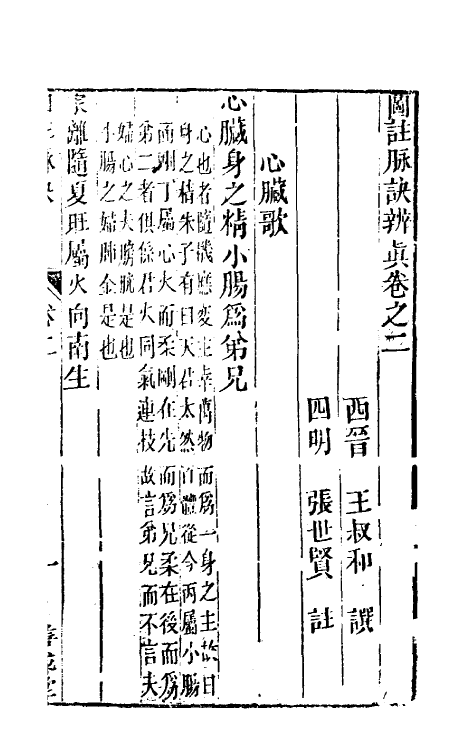 圖註脉訣辨眞卷之二
西晉　王叔和　譔
四明　張世賢　註
心臟歌
心臟身之精小腸爲弟兄
心也者隨機應変主宰萬物而爲一身之主故曰
身之精朱子有曰天君太然百體從令丙屬小腸
而剛丁屬心火而柔剛在先而爲兄柔在後而爲
弟二者俱係君火同氣連枝故言弟兄而不言夫
婦心之夫膀胱是也
小腸之婦肺金是也
象離隨夏旺屬火向南生
卷二
一
善成堂